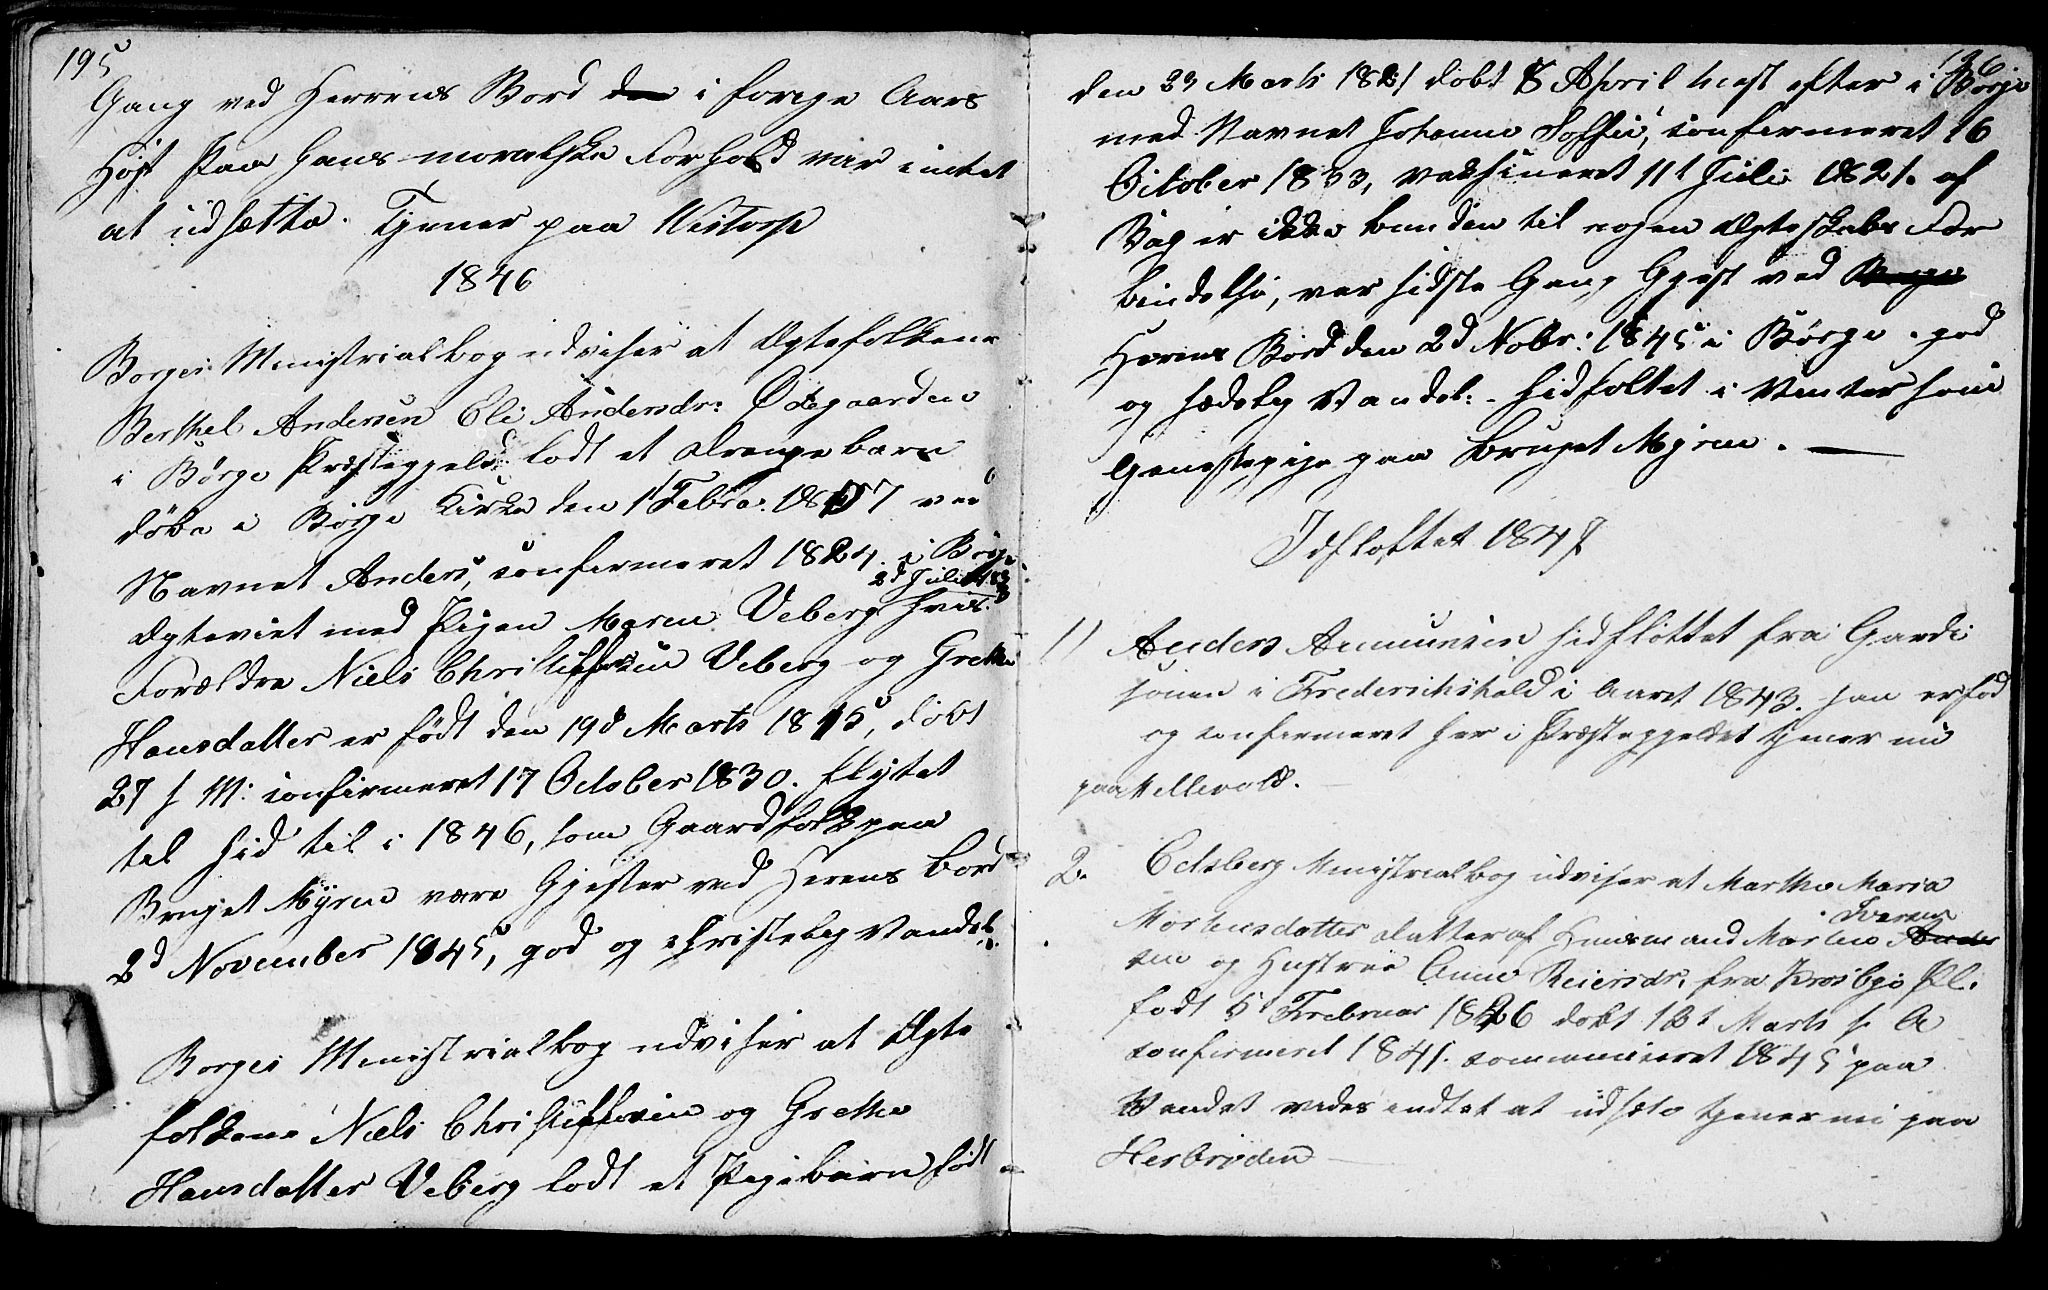 195
Gang ved Herrens Bord den i forige Aars
Høst Paa hans moralske Forhold var intet
at udsætte. Tjener paa Vistorp
1846
Borges Ministrialbog udviser at Ægtefolkene
Berthel Andersen Eli Andersdr: Ødegaarden
i Børge Præsteggeld lodt et Drengebarn
døbe i Børge Kirke den 1t Febra: 1807 ved
Navnet Anders, confirmeret 1824 i Børge
2d Juli
Ægteviet med Pigen Maren Veberg hvis
Forældre Niels Christophersen Veberg og Grethe
Hansdatter er født den 19d Marts 1815, døbt
27 s M: confirmeret 17 October 1830. flytet
tel hid til i 1846, som Gaardfolk paa
Bruget Myren være Gjester ved Herens Bord
2d November 1845, god og christelig Vandel.
Borges Ministrialbog udviser at Ægte
folkene Niels Christophersen og Grethe
Hansdatter Veberg lodt et Pigebarn født
196
den 23 Marts 1821 døbt 8 April næst efter i Børge
med Navnet Johanne Sophie, confirmeret 16
October 1833, vaksineret 11t Juli 1821. af
Vog er ikke bunden til nogen Ægteskabs For
bindelse, var sidste Gang Gjest ved
Herens Bord den 2d Nobr: 1845 i Børge. god
og sædelig Vandel. - hidfoltet i Vinter som
Genestepige paa Bruget Myren. —
Idfloftet 1847
1) Anders Amunsen hidflottet fra Garde
sonen i Frederichshald i Aaret 1843. han er fød
og confirmeret her i Præsteggeldet tjener nu
paa Mellevold.
2. Edsberg Ministrealbog udviser at Marthe Maria
Iversen
Mortensdatter Datter af Huusmand Morten Ander
sen og Hustrue Anne Reiersdr. fra Krosbye Pl.
født 5t Frebruar 1826 døbt 12t Marts s. A
confirmeret 1841. communiceret 1845 paa
Vandet vedes endtet at udsæte tjener nu paa
Herbrøden —